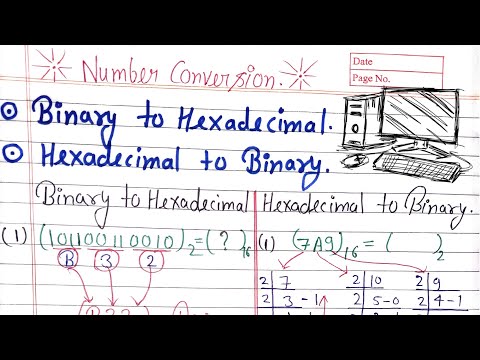 Date
Page No.
Number Conversion.
Binary to Hexadecimal.
Hexadecimal to Binary.
Binary to Hexadecimal
Hexadecimal to Binary.
(1) (101100110010)₂=(?)₁₆
B 3 2
(1) (7A9)₁₆ = ( )₂
2 7
2 3 - 1
2 10
2 5-0
2 9
2 4-1